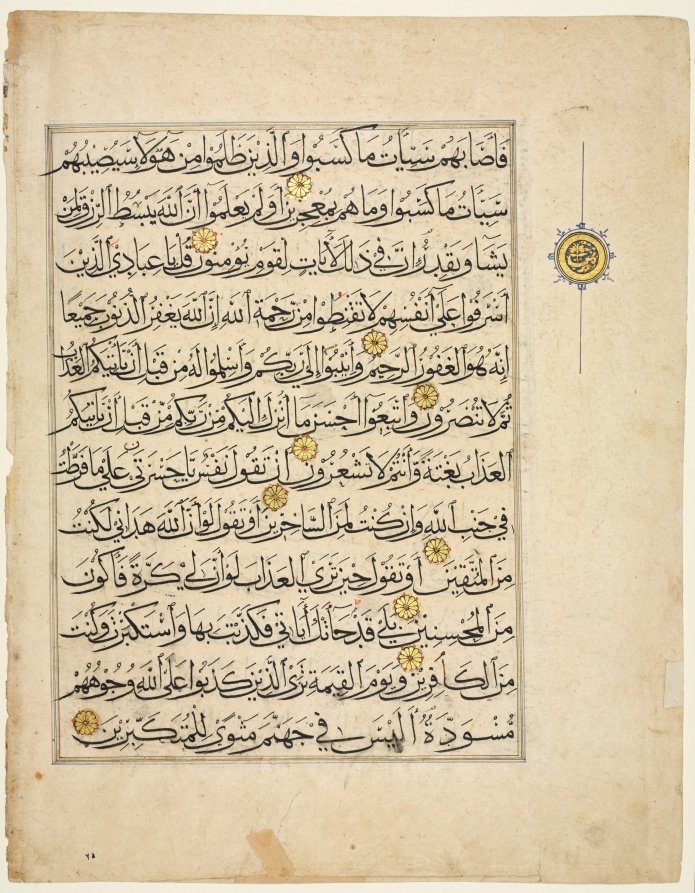 فَأَصَابَهُمْ سَيِّئَاتُ مَا كَسَبُوا وَالَّذِينَ ظَلَمُوا مِنْ هَؤُلَاءِ سَيُصِيبُهُمْ
سَيِّئَاتُ مَا كَسَبُوا وَمَا هُمْ بِمُعْجِزِينَ أَوَلَمْ يَعْلَمُوا أَنَّ اللَّهَ يَبْسُطُ الرِّزْقَ لِمَنْ
يَشَاءُ وَيَقْدِرُ إِنَّ فِي ذَلِكَ لَآيَاتٍ لِقَوْمٍ يُؤْمِنُونَ قُلْ يَا عِبَادِيَ الَّذِينَ
أَسْرَفُوا عَلَى أَنْفُسِهِمْ لَا تَقْنَطُوا مِنْ رَحْمَةِ اللَّهِ إِنَّ اللَّهَ يَغْفِرُ الذُّنُوبَ جَمِيعًا
إِنَّهُ هُوَ الْغَفُورُ الرَّحِيمُ وَأَنِيبُوا إِلَى رَبِّكُمْ وَأَسْلِمُوا لَهُ مِنْ قَبْلِ أَنْ يَأْتِيَكُمُ الْعَذَابُ
ثُمَّ لَا تُنْصَرُونَ وَاتَّبِعُوا أَحْسَنَ مَا أُنْزِلَ إِلَيْكُمْ مِنْ رَبِّكُمْ مِنْ قَبْلِ أَنْ يَأْتِيَكُمُ
الْعَذَابُ بَغْتَةً وَأَنْتُمْ لَا تَشْعُرُونَ أَنْ تَقُولَ نَفْسٌ يَا حَسْرَتَى عَلَى مَا فَرَّطْتُ
فِي جَنْبِ اللَّهِ وَإِنْ كُنْتُ لَمِنَ السَّاخِرِينَ أَوْ تَقُولَ لَوْ أَنَّ اللَّهَ هَدَانِي لَكُنْتُ
مِنَ الْمُتَّقِينَ أَوْ تَقُولَ حِينَ تَرَى الْعَذَابَ لَوْ أَنَّ لِي كَرَّةً فَأَكُونَ
مِنَ الْمُحْسِنِينَ بَلَى قَدْ جَاءَتْكَ آيَاتِي فَكَذَّبْتَ بِهَا وَاسْتَكْبَرْتَ وَكُنْتَ
مِنَ الْكَافِرِينَ وَيَوْمَ الْقِيَمَةِ تَرَى الَّذِينَ كَذَبُوا عَلَى اللَّهِ وُجُوهُهُمْ
مُسْوَدَّةٌ أَلَيْسَ فِي جَهَنَّمَ مَثْوًى لِلْمُتَكَبِّرِينَ